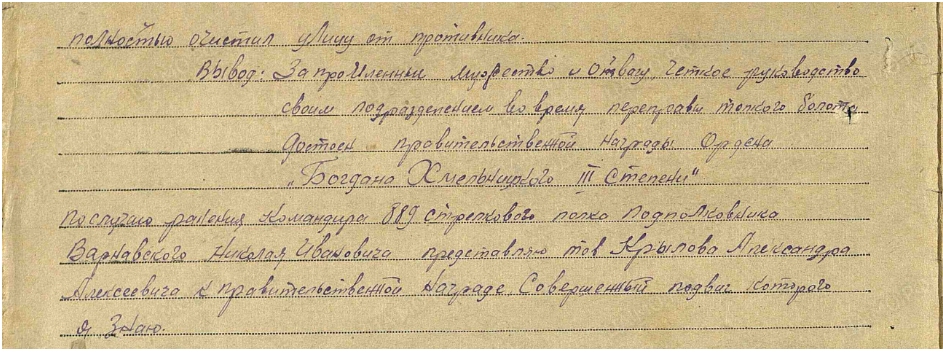 полностью очистил улицу от противника.
Вывод: За проявленни мужество и отвагу, четкое руководство
своим подразделением во время переправи топкого болота
достоен правительственной награды Ордена
„Богдана Хмельницкого III степени"
По случаю ранения Командира 889 стрелкового полка Подполковника
Варнавского Николая Ивановича представляю тов Крылова Александра
Алексеевича к правительственной Награде, Совершенный подвиг Которого
я Знаю.